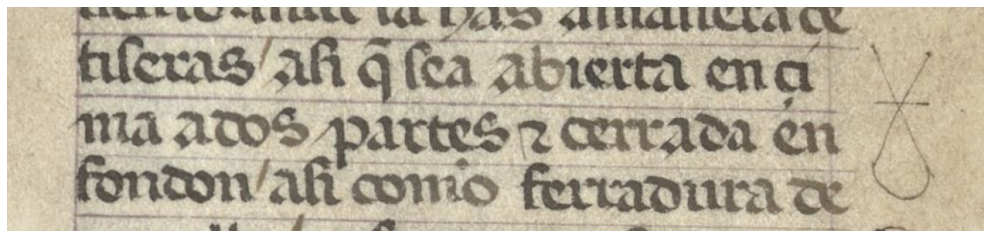 las amanera de
tiseras / asi q̃ sea abierta en çi
ma a dos partes ⁊ cerrada en
fondon / asi como ferradura de